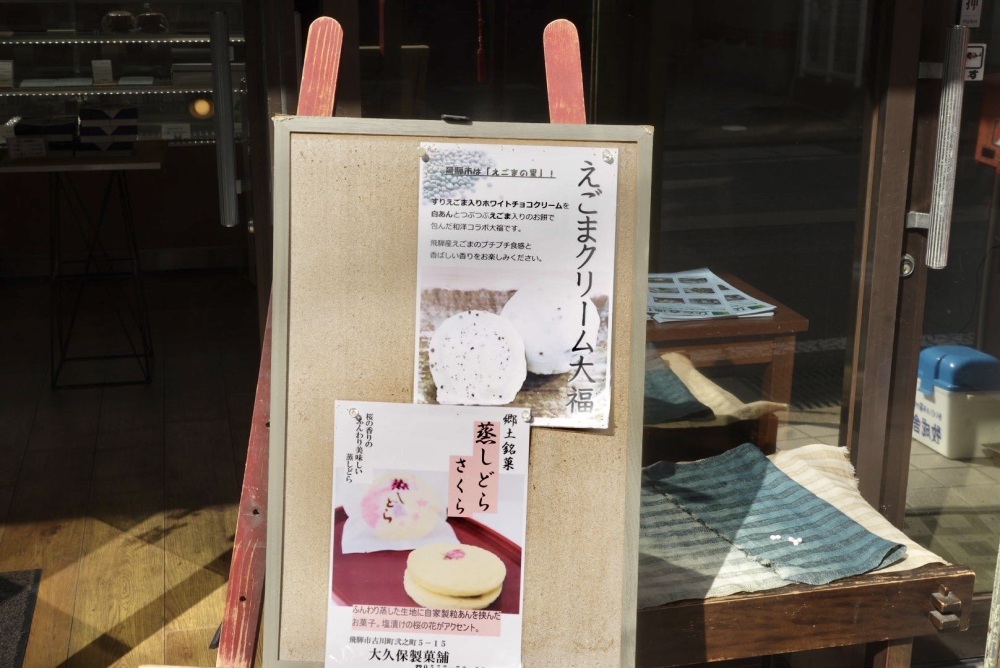 飛騨市は「えごまの里」!
すりえごま入りホワイトチョコクリームを
白あんとつぶつぶえごま入りのお餅で
包んだ和洋コラボ大福です。
飛騨産えごまのプチプチ食感と
香ばしい香りをお楽しみください。
えごまクリーム大福
郷土銘菓
蒸しどら
さくら
桜の香りの
ふんわり美味しい
蒸しどら
ふんわり蒸した生地に自家製粒あんを挟んだ
お菓子。塩漬けの桜の花がアクセント。
飛騨市古川町弐之町5-15
大久保製菓舗
押
す